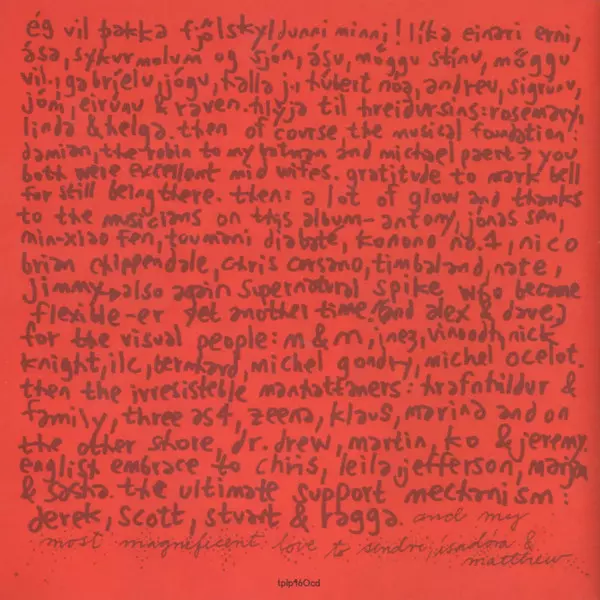 ég vil þakka fjölskyldunni minni! líka einari erni,
ása, sykurmolum og sjón, ásu, möggu stínu, möggu
vil., gabríelu, jógu, halla j., húbert nóa, andreu, sigrúnu,
jóni, eirúnu & raven. hlýja til hreidursins: rosemary,
linda & helga. then of course the musical foundation:
damian, the robin to my batman and michael paert → you
both were excellent mid wifes. gratitude to mark bell
for still being there. then: a lot of glow and thanks
to the musicians on this album - antony, jónas sen,
min-xiao fen, toumani diabaté, konono no.1, nico
brian chippendale, chris corsano, timbaland, nate,
jimmy → also again supernatural spike who became
flexible-er yet another time. (and alex & dave)
for the visual people: m & m, inez, vinoodh, nick
knight, ilc, bernhard, michel gondry, michel ocelot.
then the irresisteble manhattaners: hrafnhildur &
family, three as4, zeena, klaus, marina and on
the other shore, dr. drew, martin, ko & jeremy.
english embrace to chris, leila, jefferson, marjan
& sasha. the ultimate support mechanism:
derek, scott, stuart & ragga. and my
most magneficent love to sindri, ísadóra &
matthew
tplp460cd